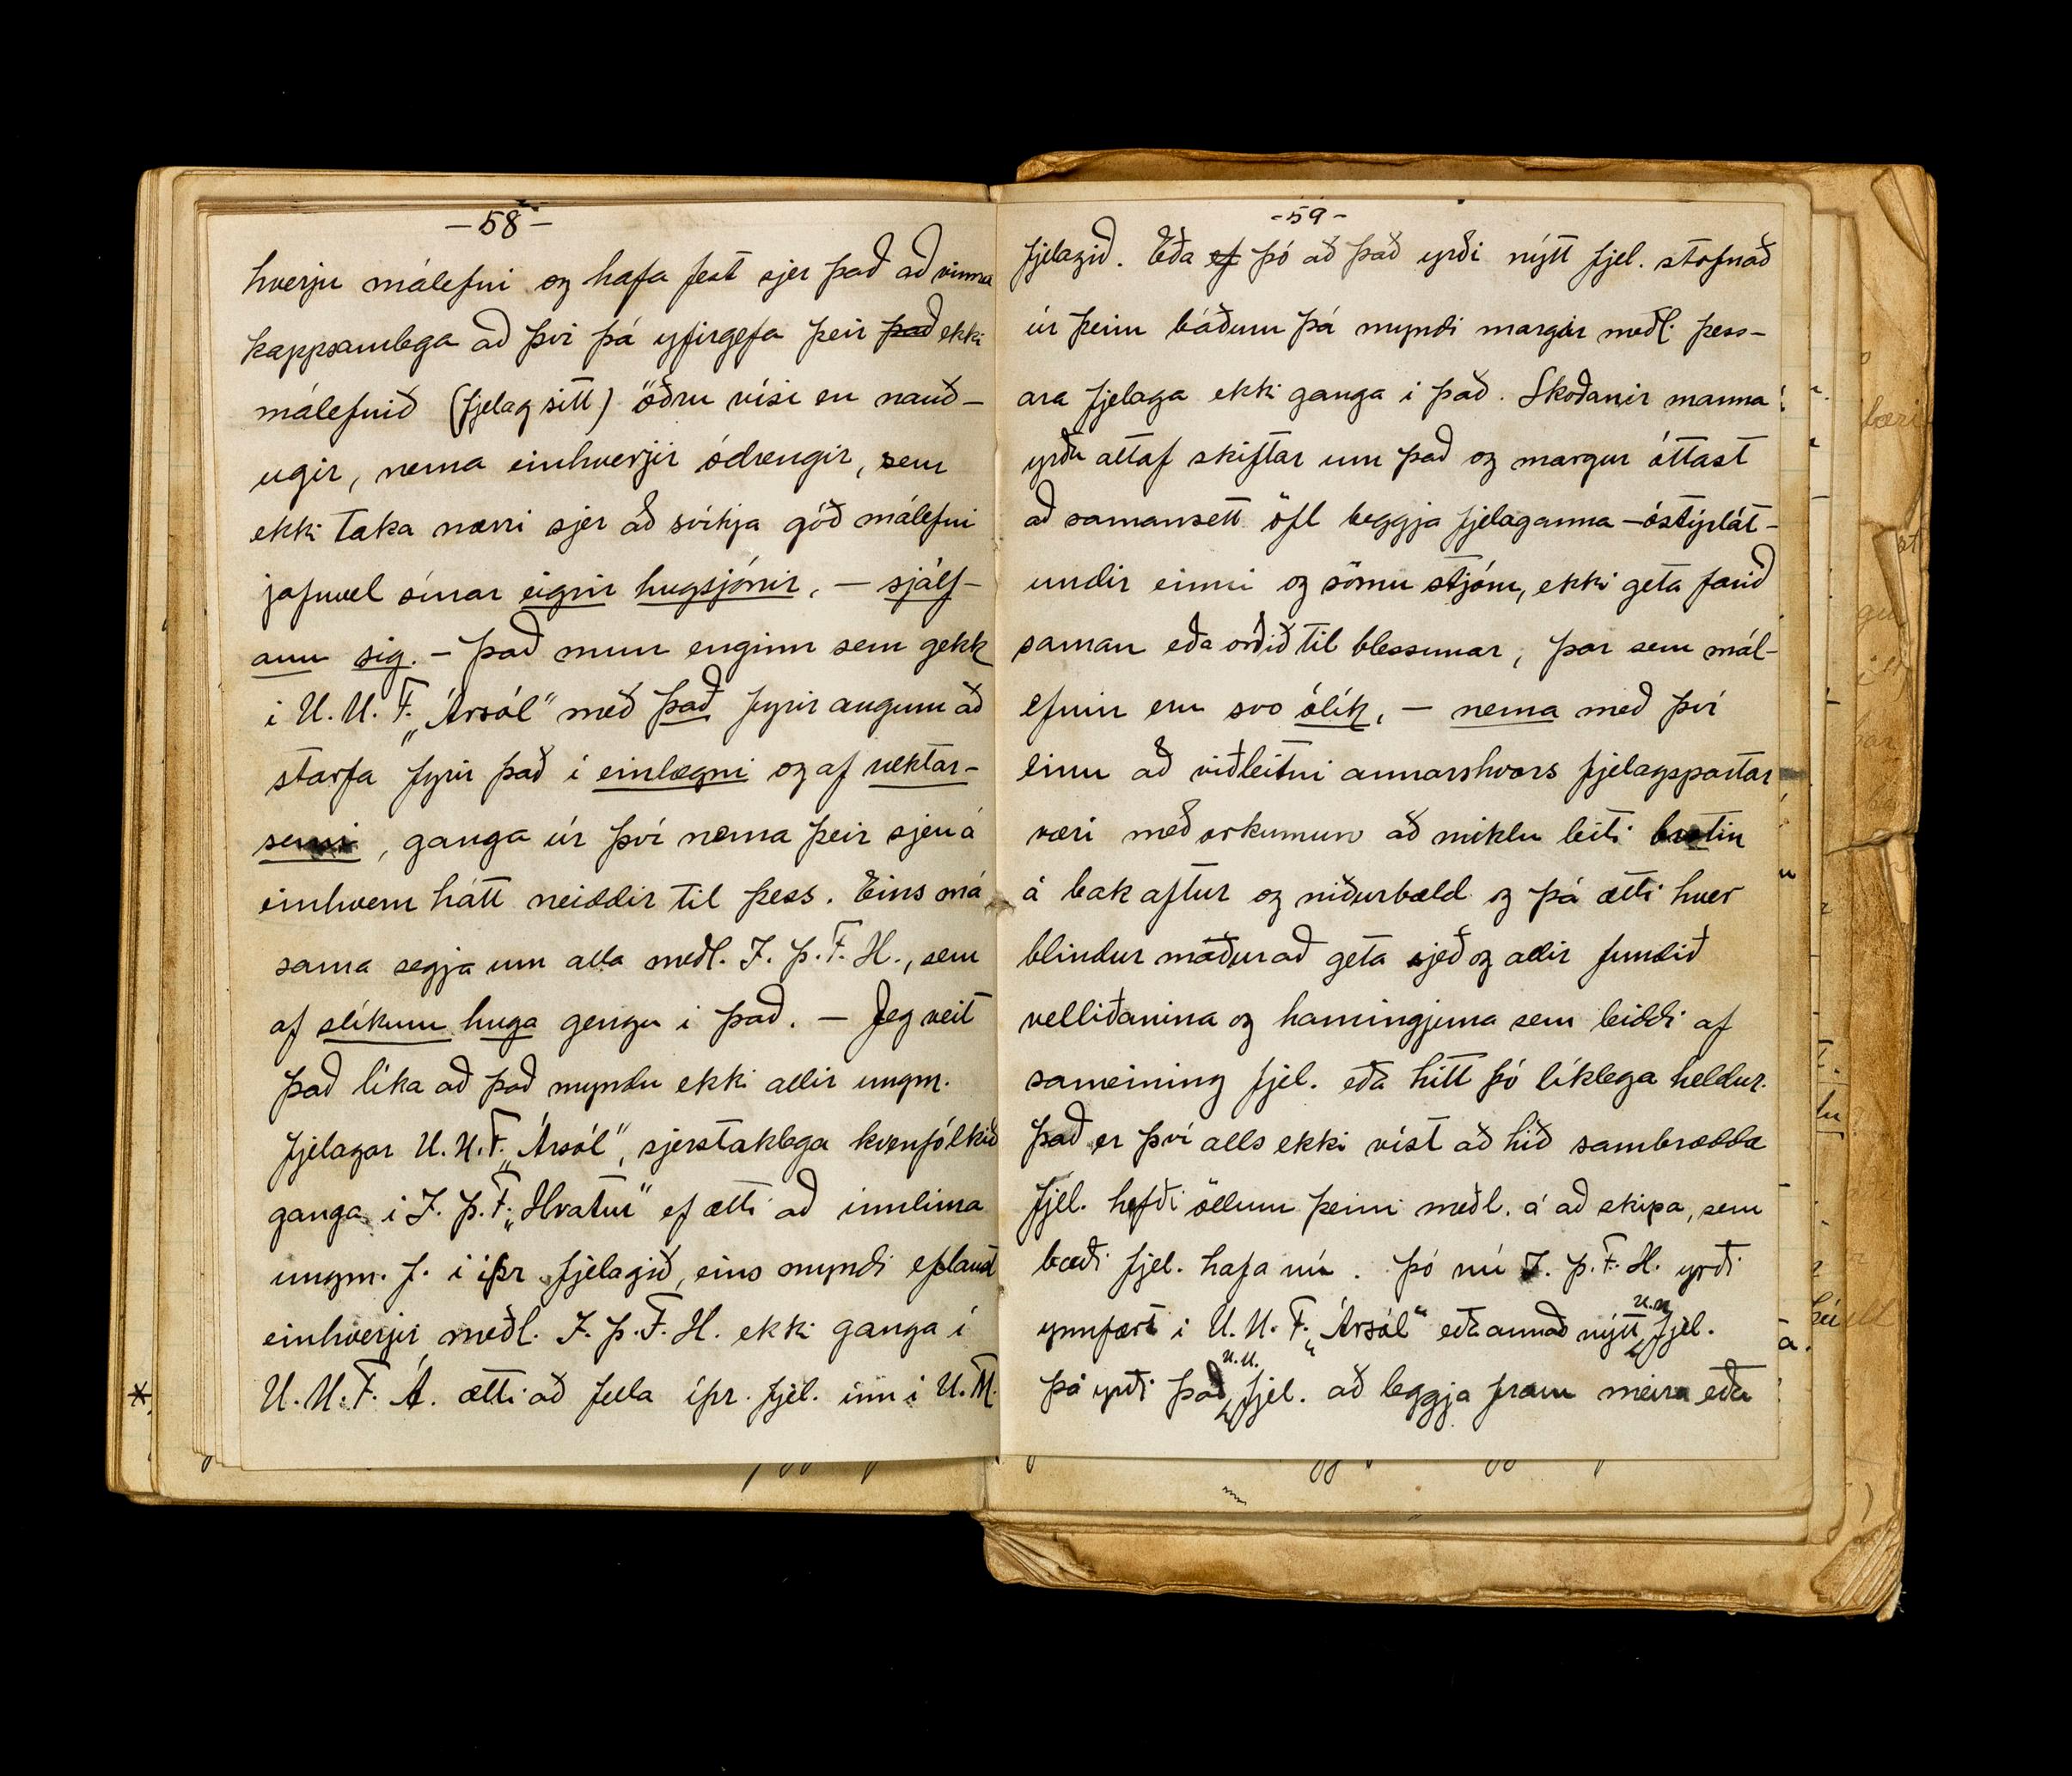 -58-
hverju málefni og hafa fest sjer það að vinna
kappsamlega að því þá yfirgefa þeir það ekki
málefnið (fjelag sitt) öðru vísi en nauð-
ugir, nema einhverjir ódrengir, sem
ekki taka nærri sjer að svíkja góð málefni
jafnvel sínar eignir hugsjónir, - sjálf-
ann sig. - Það mun enginn sem gekk
i U. M. F. „Ársól" með það fyrir augum að
starfa fyrir það i einlægni og af ræktar-
semi, ganga úr því nema þeir sjeu á
einhvern hátt neiddir til þess. Eins má
sama segja um alla meðl. I. Þ. F. H., sem
af slíkum huga gengu i það. - Jeg veit
það líka að það myndu ekki allir ungm.
fjelagar U. M. F. „Ársól", sjerstaklega kvenfólkið
ganga i I. Þ. F. „Hvatur" ef ætti að innlima
ungm. f. i íþr fjelagið, eins myndi eflaust
einhverjir meðl. I. Þ. F. H. ekki ganga í
U. M. F. Á. ætti að fella íþr. fjel. inn i U. M.
-59-
fjelagið. Eða ef þó að það yrði nýtt fjel. stofnað
úr þeim báðum þá myndi margir meðl. þess-
ara fjelaga ekki ganga i það. Skoðanir manna
yrðu altaf skiftar um það og margur óttast
að samansett öfl beggja fjelaganna - óstýrlát -
undir einni og sömu stjórn, ekki geta farið
saman eða orðið til blessunar, þar sem mál-
efnin eru svo ólík, - nema með því
einu að viðleitni annarshvors fjelagspartar
væri með orkumun að miklu leiti brotin
á bak aftur og niðurbæld og þá ætti hver
blindur maður að geta sjeð og allir fundið
vellíðanina og hamingjuna sem leiddi af
sameining fjel. eða hitt þó líklega heldur.
það er því alls ekki víst að hið sambrædda
fjel. hefði öllum þeim meðl. á að skipa, sem
bæði fjel. hafa nú. Þó nú I. Þ. F. H. yrði
ynnfært i U. M. F. „Ársól" eða annað nýtt u.m. fjel.
þá yrði það u.m. fjel. að leggja fram meira eða